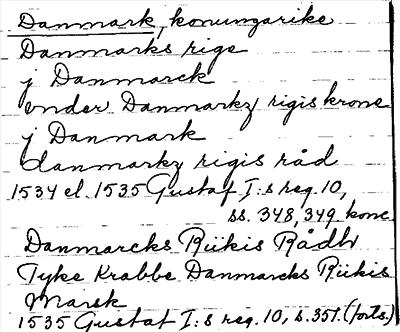 Danmark, konungarike
Danmarks rige
j Danmarck
vnder Danmarkz rigis krone
j Danmark
danmarkz rigis råd
1534 el. 1535 Gustaf I:s reg. 10,
ss. 348, 349 konc.
Danmarcks Riikis Rådh
Tyke Krabbe Danmarcks Riikis
Marsk
1535 Gustaf I:s reg. 10, s. 351. (forts.)